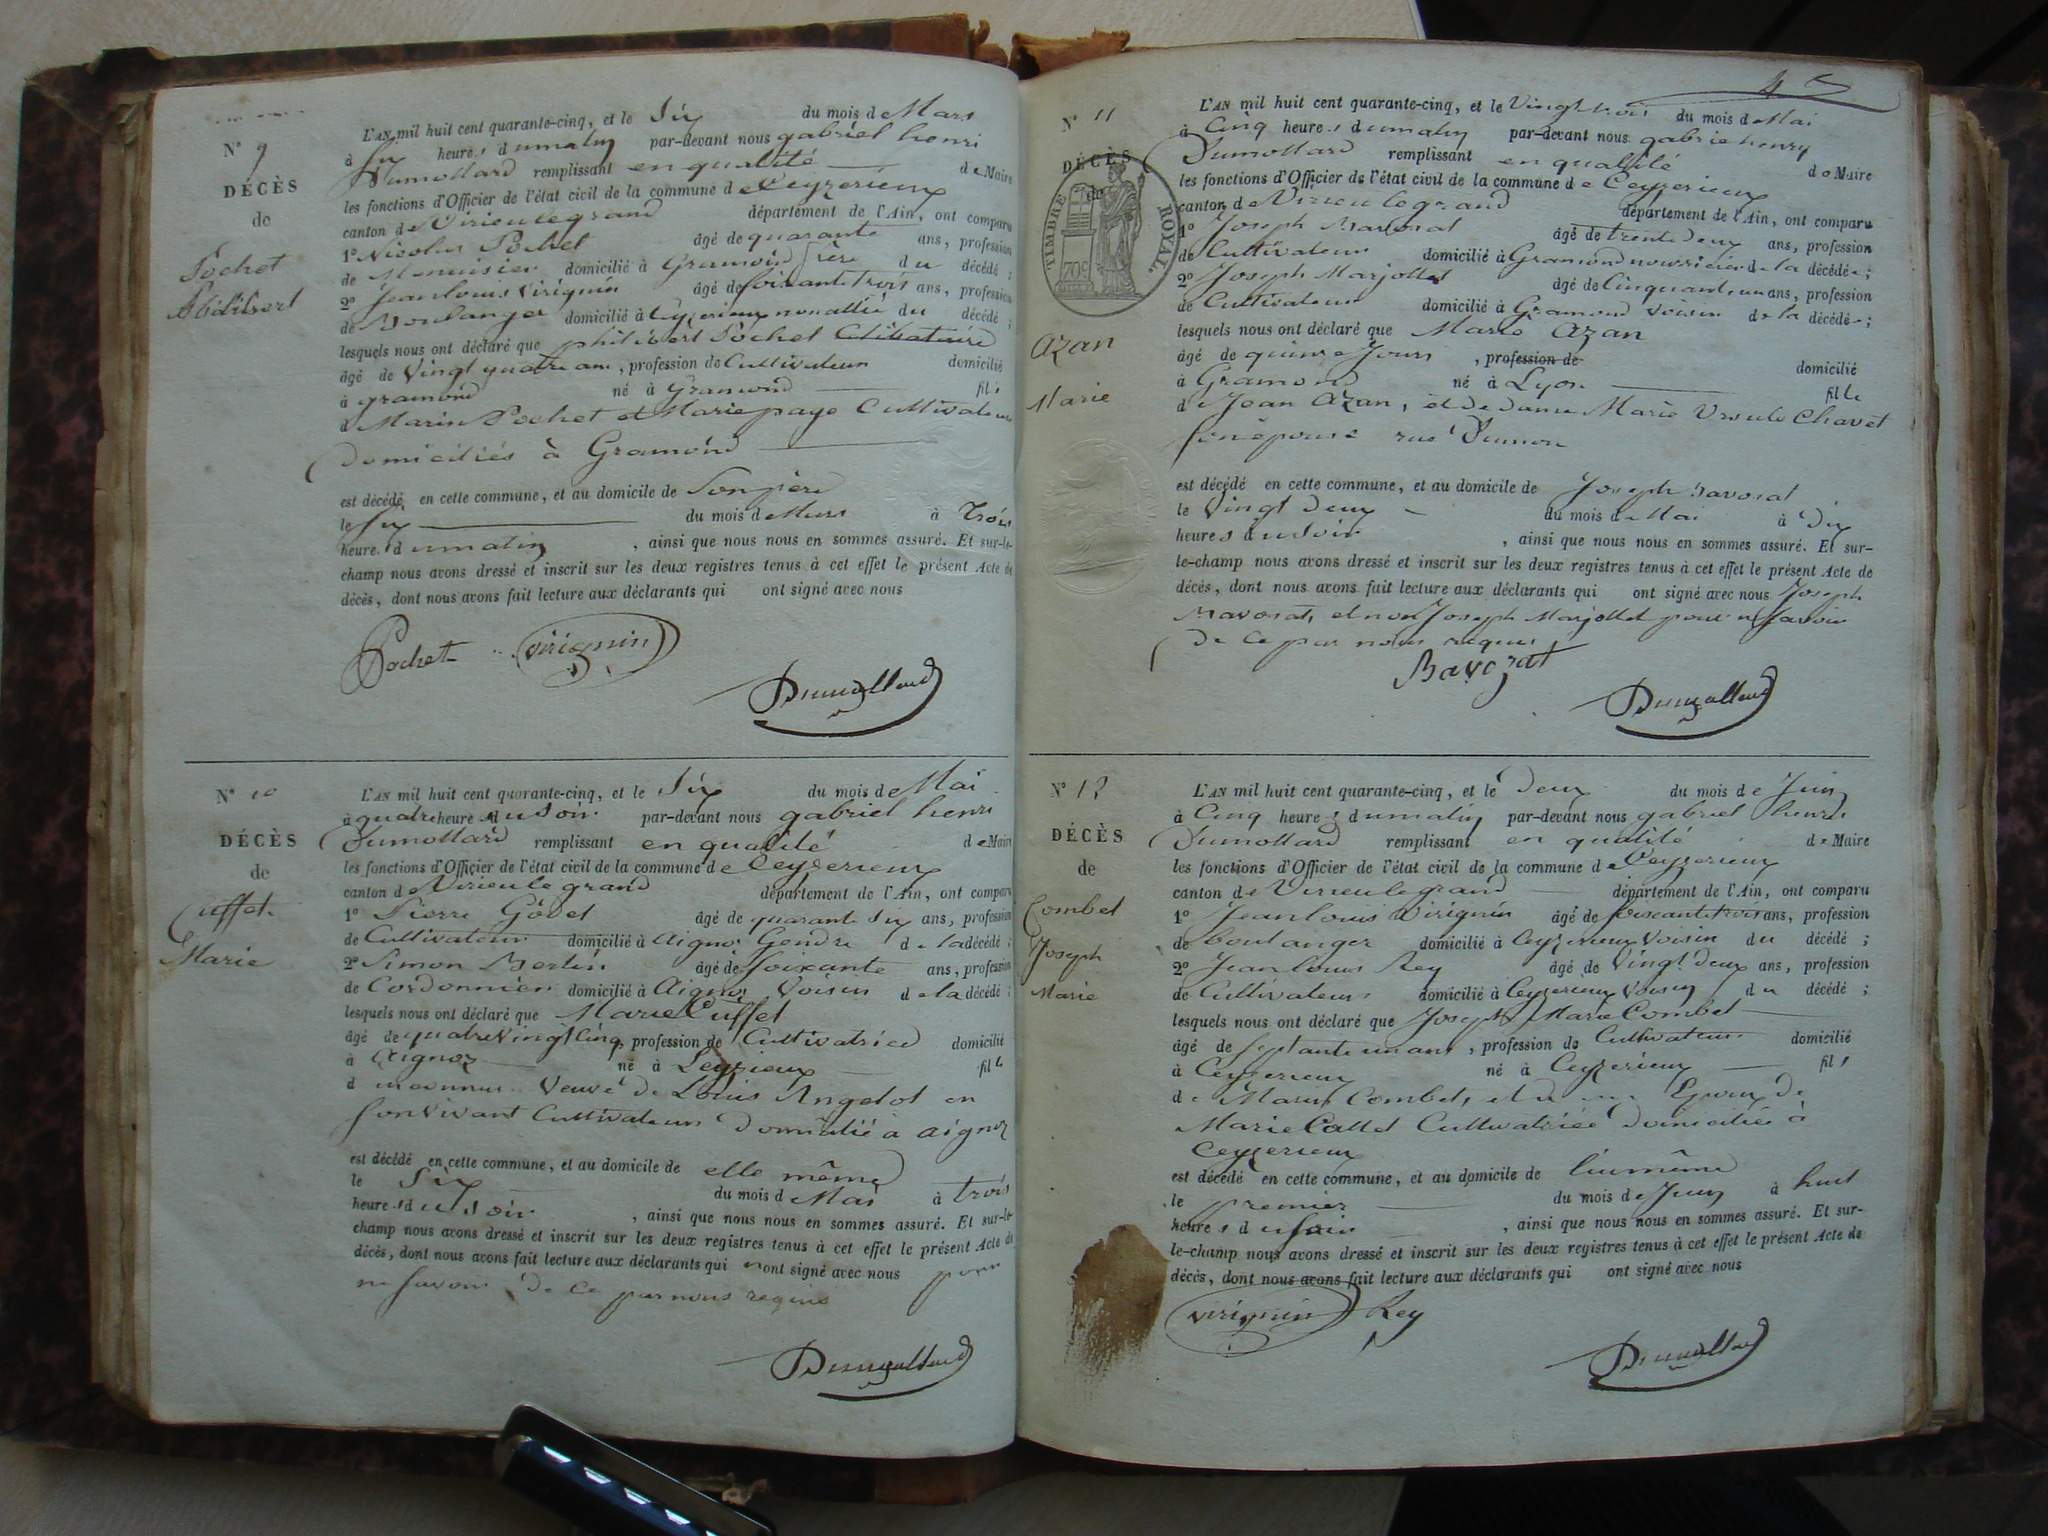 N° 9
DÉCÈS
de
Pochet
Philibert
L'AN mil huit cent quarante-cinq, et le Six du mois de Mars
à Six heures du matin par-devant nous gabriel henri
Dumollard remplissant en qualité de Maire
les fonctions d'Officier de l'état civil de la commune de Ceyzerieux
canton de Virieulegrand département de l'Ain, ont comparu
1° Nicolas Pochet âgé de quarante ans, profession
de Menuisier domicilié à Gramond frère du décédé ;
2° Jeanlouis Virignin âgé de soixantetrois ans, profession
de Boulanger domicilié à Ceyzerieux non allié du décédé ;
lesquels nous ont déclaré que philibert Pochet Célibataire
âgé de Vingt quatre ans, profession de Cultivateur domicilié
à gramond né à Gramond fils
d Marin Pochet et Marie paye Cultivateurs
domiciliés à Gramond
est décédé en cette commune, et au domicile de Son père
le Six du mois de Mars à Trois
heures du matin, ainsi que nous nous en sommes assuré. Et sur-le-
champ nous avons dressé et inscrit sur les deux registres tenus à cet effet le présent Acte de
décès, dont nous avons fait lecture aux déclarants qui ont signé avec nous
Pochet virignin
Dumollard
N° 10
DÉCÈS
de
Cuffet
Marie
L'AN mil huit cent quarante-cinq, et le Six du mois de Mai
à quatre heure du Soir par-devant nous gabriel henri
Dumollard remplissant en qualité de Maire
les fonctions d'Officier de l'état civil de la commune de Ceyzerieux
canton de Virieulegrand département de l'Ain, ont comparu
1° Pierre Godet âgé de quarante Six ans, profession
de Cultivateur domicilié à Aignoz Gendre de la décédé ;
2° Simon Bertin âgé de Soixante ans, profession
de Cordonnier domicilié à Aignoz Voisin de la décédé ;
lesquels nous ont déclaré que Marie Cuffet
âgé de quatre Vingt Cinq, profession de Cultivatrice domicilié
à Aignoz né à Ceyzerieux fille
d inconnus Veuve de Louis Angelot en
Son Vivant Cultivateur Domicilié à aignoz
est décédé en cette commune, et au domicile de elle même
le Six du mois de Mai à trois
heures du Soir, ainsi que nous nous en sommes assuré. Et sur-le-
champ nous avons dressé et inscrit sur les deux registres tenus à cet effet le présent Acte de
décès, dont nous avons fait lecture aux déclarants qui n'ont signé avec nous pour
ne Savoir de ce par nous requis
Dumollard
N° 11
DÉCÈS
de
TIMBRE ROYAL
70c
Azan
Marie
L'AN mil huit cent quarante-cinq, et le Vingt trois du mois de Mai
à Cinq heures du matin par-devant nous gabriel henry
Dumollard remplissant en qualité de Maire
les fonctions d'Officier de l'état civil de la commune de Ceyzerieux
canton de Virieulegrand département de l'Ain, ont comparu
1° Joseph Bavosat âgé de trente deux ans, profession
de Cultivateur domicilié à Gramond nourricier de la décédée ;
2° Joseph Marjollet âgé de Cinquante un ans, profession
de Cultivateur domicilié à Gramond Voisin de la décédée ;
lesquels nous ont déclaré que Marie Azan
âgé de quinze Jours, profession de domicilié
à Gramond né à Lyon fille
de Jean Azan, et de dame Marie Ursule Chavet
Son épouse rue Dumon
est décédé en cette commune, et au domicile de Joseph Bavosat
le Vingt Deux du mois de Mai à Dix
heures du Soir, ainsi que nous nous en sommes assuré. Et sur-
le-champ nous avons dressé et inscrit sur les deux registres tenus à cet effet le présent Acte de
décès, dont nous avons fait lecture aux déclarants qui ont signé avec nous Joseph
Bavosat, et non Joseph Marjollet pour ne Savoir
de ce par nous requis
Bavozat
Dumollard
N° 12
DÉCÈS
de
Combet
Joseph
Marie
L'AN mil huit cent quarante-cinq, et le Deux du mois de Juin
à Cinq heures du matin par-devant nous gabriel henri
Dumollard remplissant en qualité de Maire
les fonctions d'Officier de l'état civil de la commune de Ceyzerieux
canton de Virieulegrand département de l'Ain, ont comparu
1° Jeanlouis Virignin âgé de Soixantetrois ans, profession
de boulanger domicilié à Ceyzerieux Voisin du décédé ;
2° Jean louis Rey âgé de Vingt deux ans, profession
de Cultivateur domicilié à Ceyzerieux Voisin du décédé ;
lesquels nous ont déclaré que Joseph Marie Combet
âgé de Septante un ans, profession de Cultivateur domicilié
à Ceyzerieux né à Ceyzerieux fils
de Marin Combet, et Epoux de
Marie Callet Cultivatrice Domiciliée à
Ceyzerieux
est décédé en cette commune, et au domicile de lui même
le premier du mois de Juin à huit
heures du Soir, ainsi que nous nous en sommes assuré. Et sur-
le-champ nous avons dressé et inscrit sur les deux registres tenus à cet effet le présent Acte de
décès, dont nous avons fait lecture aux déclarants qui ont signé avec nous
virignin Rey
Dumollard